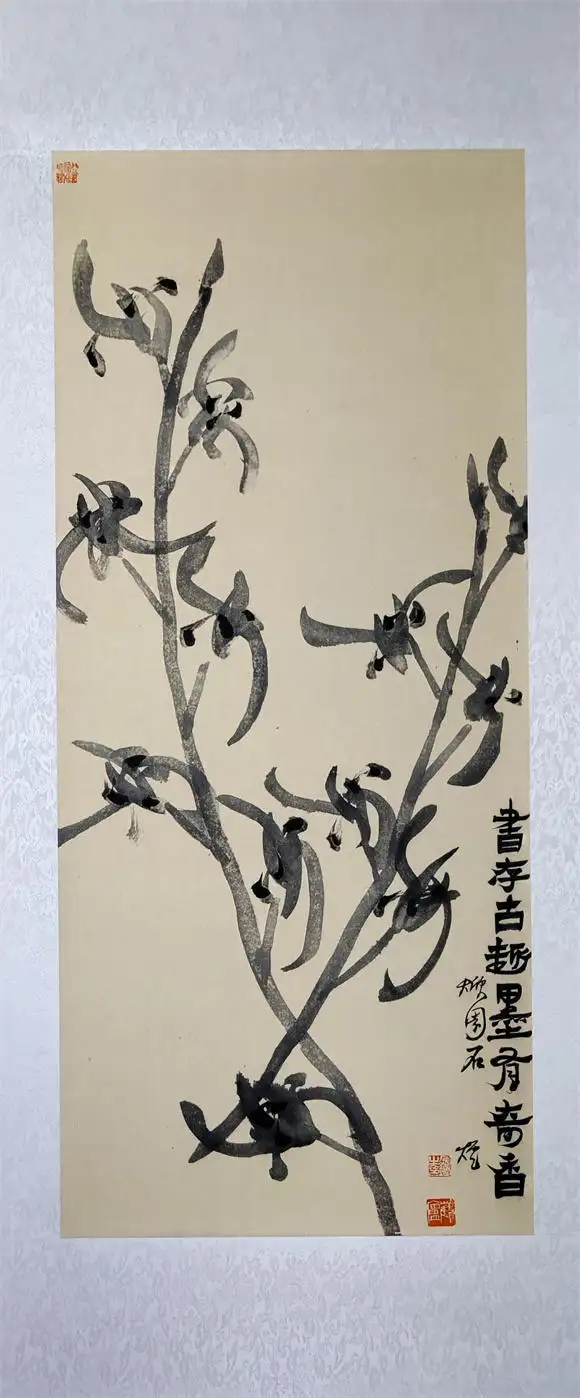 書存古趣墨有奇香
園石